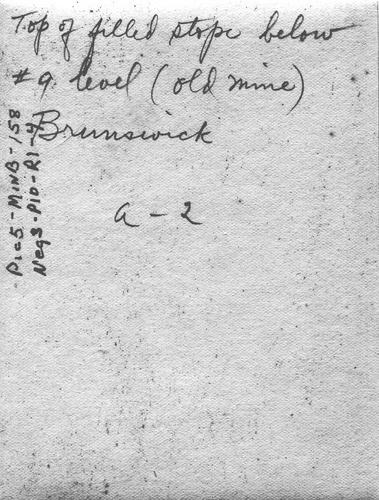 Top of filled stope below
#9 level (old mine)
Brunswick
a - 2
Pic5-MINB-158
Neg3-P10-R1-